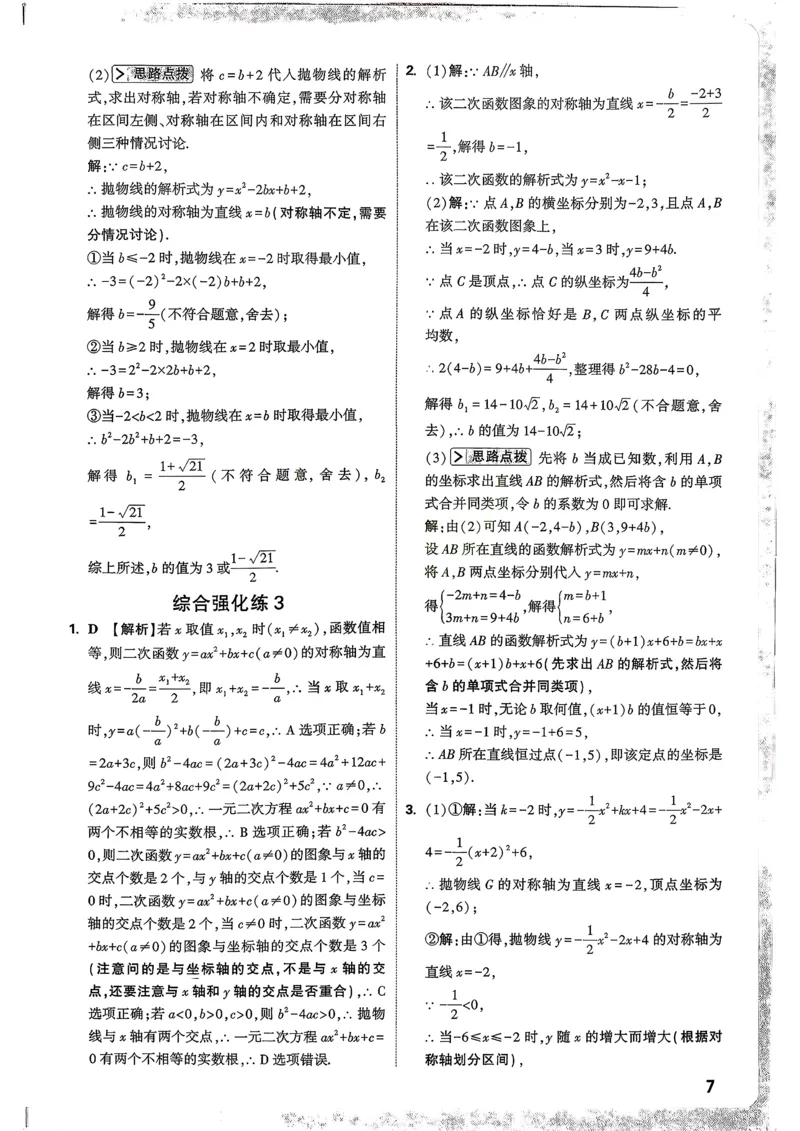 (2)思路点拨 将 c=b+2 代入抛物线的解析
式,求出对称轴,若对称轴不确定,需要分对称轴
在区间左侧、对称轴在区间内和对称轴在区间右
侧三种情况讨论.
解:∵ c=b+2,
∴ 抛物线的解析式为 y=x²-2bx+b+2,
∴ 抛物线的对称轴为直线 x=b(对称轴不定,需要
分情况讨论).
①当 b≤-2 时,抛物线在 x=-2 时取得最小值,
∴ -3=(-2)²-2×(-2)b+b+2,
解得 b=-9/5(不符合题意,舍去);
②当 b≥2 时,抛物线在 x=2 时取最小值,
∴ -3=2²-2×2b+b+2,
解得 b=3;
③当-2<b<2 时,抛物线在 x=b 时取得最小值,
∴ b²-2b²+b+2=-3,
解得 b₁=(1+√21)/2(不符合题意,舍去),b₂
=(1-√21)/2,
综上所述,b 的值为 3 或(1-√21)/2.
综合强化练 3
1. D 【解析】若 x 取值 x₁,x₂ 时(x₁≠x₂),函数值相
等,则二次函数 y=ax²+bx+c(a≠0)的对称轴为直
线 x=-b/2a=(x₁+x₂)/2,即 x₁+x₂=-b/a,∴ 当 x 取 x₁+x₂
时,y=a(-b/a)²+b(-b/a)+c=c,∴ A 选项正确;若 b
=2a+3c,则 b²-4ac=(2a+3c)²-4ac=4a²+12ac+
9c²-4ac=4a²+8ac+9c²=(2a+2c)²+5c²,∵ a≠0,∴
(2a+2c)²+5c²>0,∴ 一元二次方程 ax²+bx+c=0 有
两个不相等的实数根,∴ B 选项正确;若 b²-4ac>
0,则二次函数 y=ax²+bx+c(a≠0)的图象与 x 轴的
交点个数是 2 个,与 y 轴的交点个数是 1 个,当 c=
0 时,二次函数 y=ax²+bx+c(a≠0)的图象与坐标
轴的交点个数是 2 个,当 c≠0 时,二次函数 y=ax²
+bx+c(a≠0)的图象与坐标轴的交点个数是 3 个
(注意问的是与坐标轴的交点,不是与 x 轴的交
点,还要注意与 x 轴和 y 轴的交点是否重合),∴ C
选项正确;若 a<0,b>0,c>0,则 b²-4ac>0,∴ 抛物
线与 x 轴有两个交点,∴ 一元二次方程 ax²+bx+c=
0 有两个不相等的实数根,∴ D 选项错误.
2. (1)解:∵ AB∥x 轴,
∴ 该二次函数图象的对称轴为直线 x=-b/2=(-2+3)/2
=1/2,解得 b=-1,
∴ 该二次函数的解析式为 y=x²-x-1;
(2)解:∵ 点 A,B 的横坐标分别为-2,3,且点 A,B
在该二次函数图象上,
∴ 当 x=-2 时,y=4-b,当 x=3 时,y=9+4b.
∵ 点 C 是顶点,∴ 点 C 的纵坐标为(4b-b²)/4,
∵ 点 A 的纵坐标恰好是 B,C 两点纵坐标的平
均数,
∴ 2(4-b)=9+4b+(4b-b²)/4,整理得 b²-28b-4=0,
解得 b₁=14-10√2,b₂=14+10√2(不合题意,舍
去),∴ b 的值为 14-10√2;
(3)思路点拨 先将 b 当成已知数,利用 A,B
的坐标求出直线 AB 的解析式,然后将含 b 的单项
式合并同类项,令 b 的系数为 0 即可求解.
解:由(2)可知 A(-2,4-b),B(3,9+4b),
设 AB 所在直线的函数解析式为 y=mx+n(m≠0),
将 A,B 两点坐标分别代入 y=mx+n,
得{-2m+n=4-b 3m+n=9+4b,解得{m=b+1 n=6+b,
∴ 直线 AB 的函数解析式为 y=(b+1)x+6+b=bx+x
+6+b=(x+1)b+x+6(先求出 AB 的解析式,然后将
含 b 的单项式合并同类项),
当 x=-1 时,无论 b 取何值,(x+1)b 的值恒等于 0,
∴ 当 x=-1 时,y=-1+6=5,
∴ AB 所在直线恒过点(-1,5),即该定点的坐标是
(-1,5).
3. (1)①解:当 k=-2 时,y=-1/2x²+kx+4=-1/2x²-2x+
4=-1/2(x+2)²+6,
∴ 抛物线 G 的对称轴为直线 x=-2,顶点坐标为
(-2,6);
②解:由①得,抛物线 y=-1/2x²-2x+4 的对称轴为
直线 x=-2,
∵ -1/2<0,
∴ 当-6≤x≤-2 时,y 随 x 的增大而增大(根据对
称轴划分区间),
7